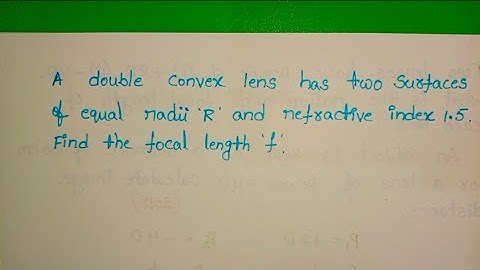 A double convex lens has two surfaces
of equal radii 'R' and refractive index 1.5.
Find the focal length 'f'.